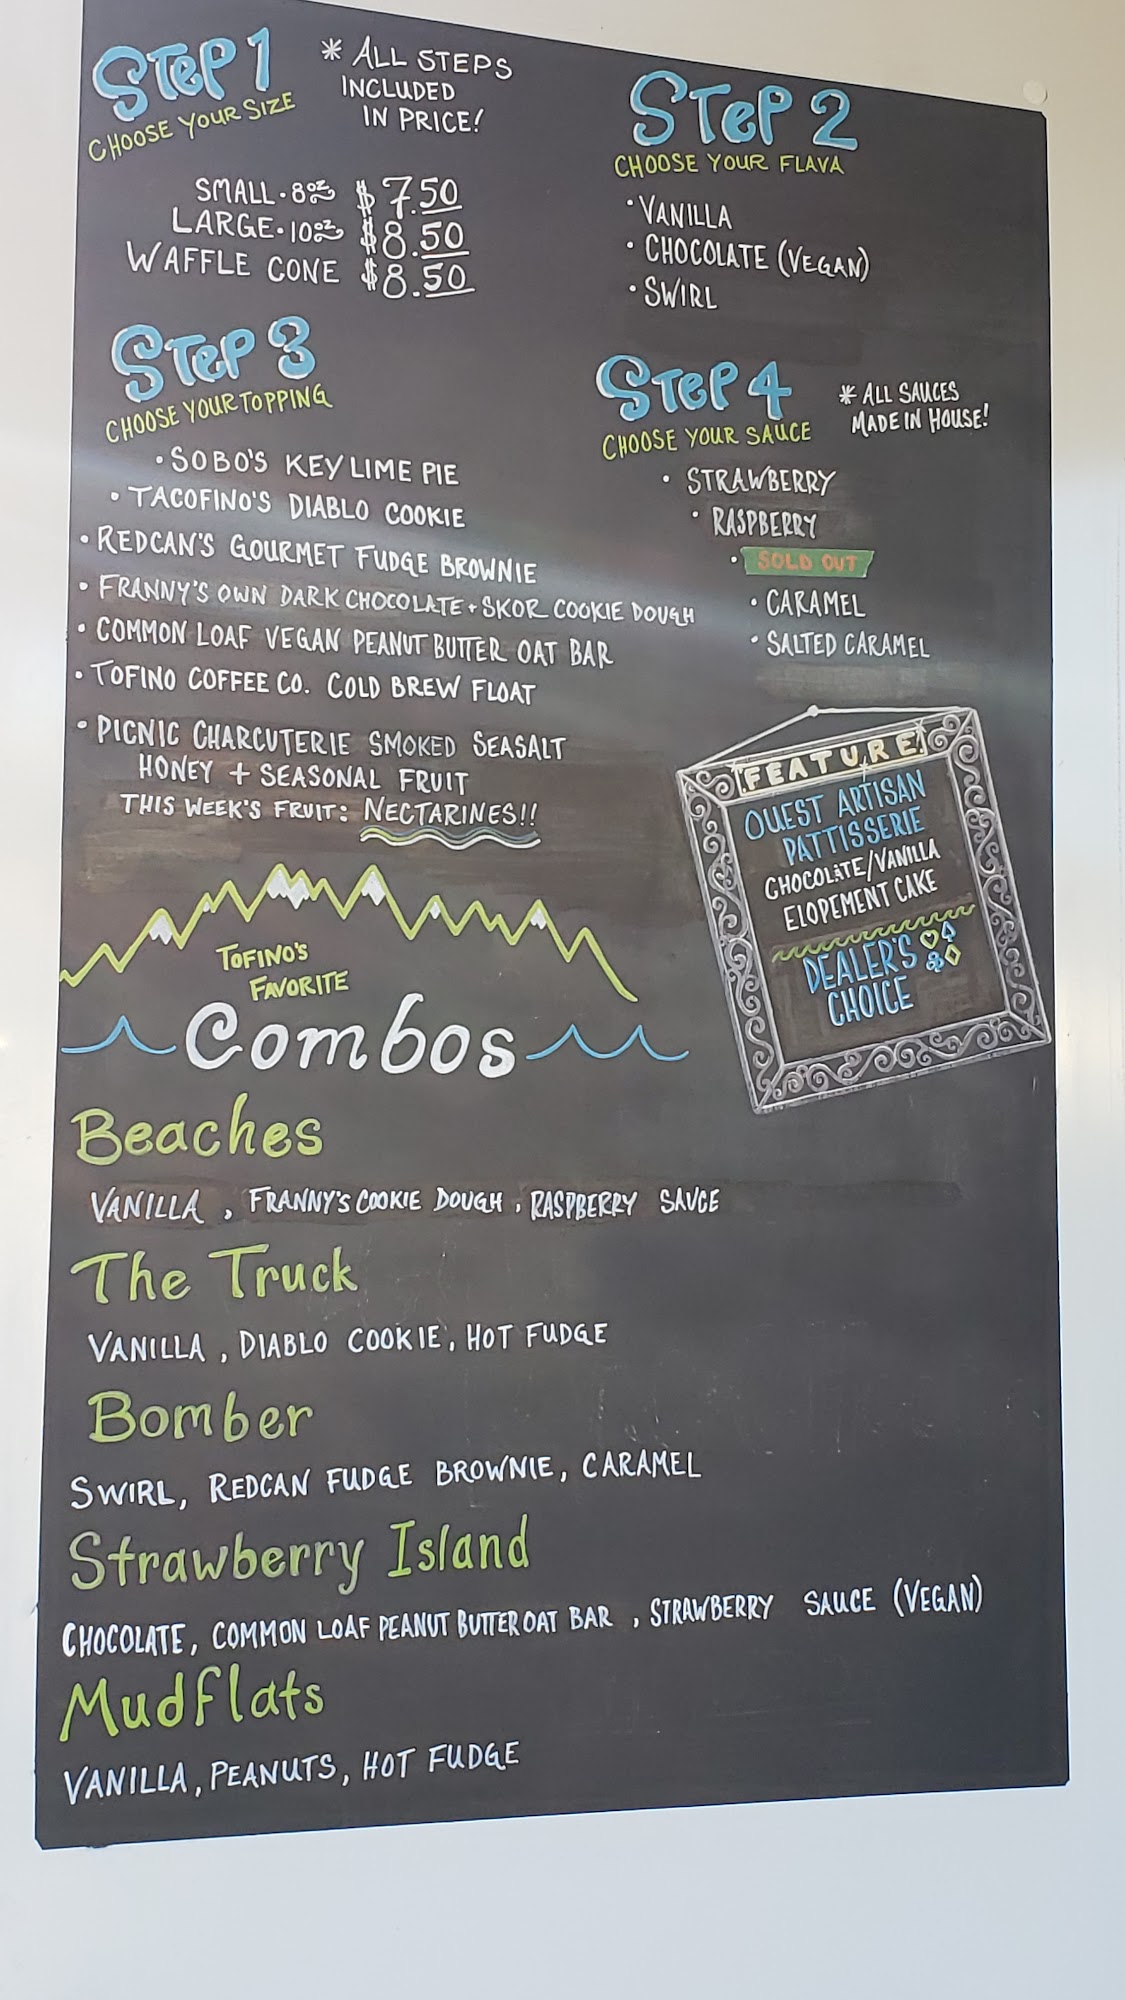 STEP 1
CHOOSE YOUR SIZE
* ALL STEPS
INCLUDED
IN PRICE!
SMALL · 8oz $7.50
LARGE · 10oz $8.50
WAFFLE CONE $8.50
STEP 2
CHOOSE YOUR FLAVA
· VANILLA
· CHOCOLATE (VEGAN)
· SWIRL
STEP 3
CHOOSE YOUR TOPPING
· SOBO'S KEY LIME PIE
· TACOFINO'S DIABLO COOKIE
· REDCAN'S GOURMET FUDGE BROWNIE
· FRANNY'S OWN DARK CHOCOLATE + SKOR COOKIE DOUGH
· COMMON LOAF VEGAN PEANUT BUTTER OAT BAR
· TOFINO COFFEE CO. COLD BREW FLOAT
· PICNIC CHARCUTERIE SMOKED SEASALT
HONEY + SEASONAL FRUIT
THIS WEEK'S FRUIT: NECTARINES!!
STEP 4
CHOOSE YOUR SAUCE
* ALL SAUCES
MADE IN HOUSE!
· STRAWBERRY
· RASPBERRY
· SOLD OUT
· CARAMEL
· SALTED CARAMEL
FEATURE
OUEST ARTISAN
PATTISSERIE
CHOCOLATE/VANILLA
ELOPEMENT CAKE
DEALER'S
CHOICE
TOFINO'S
FAVORITE
Combos
Beaches
VANILLA, FRANNY'S COOKIE DOUGH, RASPBERRY SAUCE
The Truck
VANILLA, DIABLO COOKIE, HOT FUDGE
Bomber
SWIRL, REDCAN FUDGE BROWNIE, CARAMEL
Strawberry Island
CHOCOLATE, COMMON LOAF PEANUT BUTTER OAT BAR, STRAWBERRY SAUCE (VEGAN)
Mudflats
VANILLA, PEANUTS, HOT FUDGE